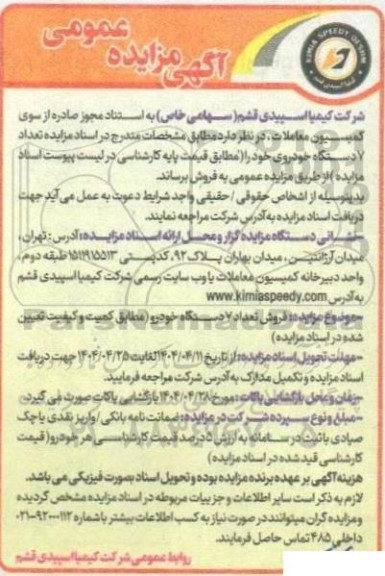 آگهی مزایده عمومی
KIMIA SPEEDY QESHM
شرکت کیمیا اسپیدی قشم( سهامی خاص) به استناد مجوز صادره از سوی
کمیسیون معاملات ، در نظر دارد مطابق مشخصات مندرج در اسناد مزایده تعداد
۷ دستگاه خودروی خود را (مطابق قیمت پایه کارشناسی در لیست پیوست اسناد
مزایده )از طریق مزایده عمومی به فروش برساند.
بدینوسیله از اشخاص حقوقی / حقیقی واجد شرایط دعوت به عمل می آید جهت
دریافت اسناد مزایده به آدرس شرکت مراجعه نمایند.
-نشانی دستگاه مزایده گزار و محل ارائه اسناد مزایده: آدرس : تهران ،
میدان آرژانتین ، میدان بهاران پلاک ۹۲، کدپستی ۱۵۱۹۱۵۵۱۳ طبقه دوم ،
واحد دبیرخانه کمیسیون معاملات یا وب سایت رسمی شرکت کیمیا اسپیدی قشم
به آدرس www.kimiaspeedy.com
-موضوع مزایده: فروش تعداد ۷ دستگاه خودرو (مطابق کمیت و کیفیت تعیین
شده در اسناد مزایده)
-مهلت تحویل اسناد مزایده: از تاریخ ۱۴۰۴/۰۴/۱۱ لغایت ۱۴۰۴/۰۴/۲۵ جهت دریافت
اسناد مزایده و تکمیل مدارک به آدرس شرکت مراجعه فرمایید.
-زمان و محل بازگشایی پاکات : مورخ ۱۴۰۴/۰۴/۲۸ بازگشایی پاکات صورت می گیرد.
-مبلغ و نوع سپرده شرکت در مزایده: ضمانت نامه بانکی / واریز نقدی یا چک
صیادی با ثبت در سامانه به ارزش ۵ درصد قیمت کارشناسی هر خودرو( قیمت
کارشناسی قید شده در اسناد مزایده)
هزینه آگهی بر عهده برنده مزایده بوده و تحویل اسناد بصورت فیزیکی می باشد.
لازم به ذکر است سایر اطلاعات و جزییات مربوطه در اسناد مزایده مشخص گردیده
و مزایده گران میتوانند در صورت نیاز به کسب اطلاعات بیشتر با شماره ۹۲۰۰۰۱۱۲-۰۲۱
داخلی ۴۸۵ تماس حاصل فرمایند.
روابط عمومی شرکت کیمیا اسپیدی قشم